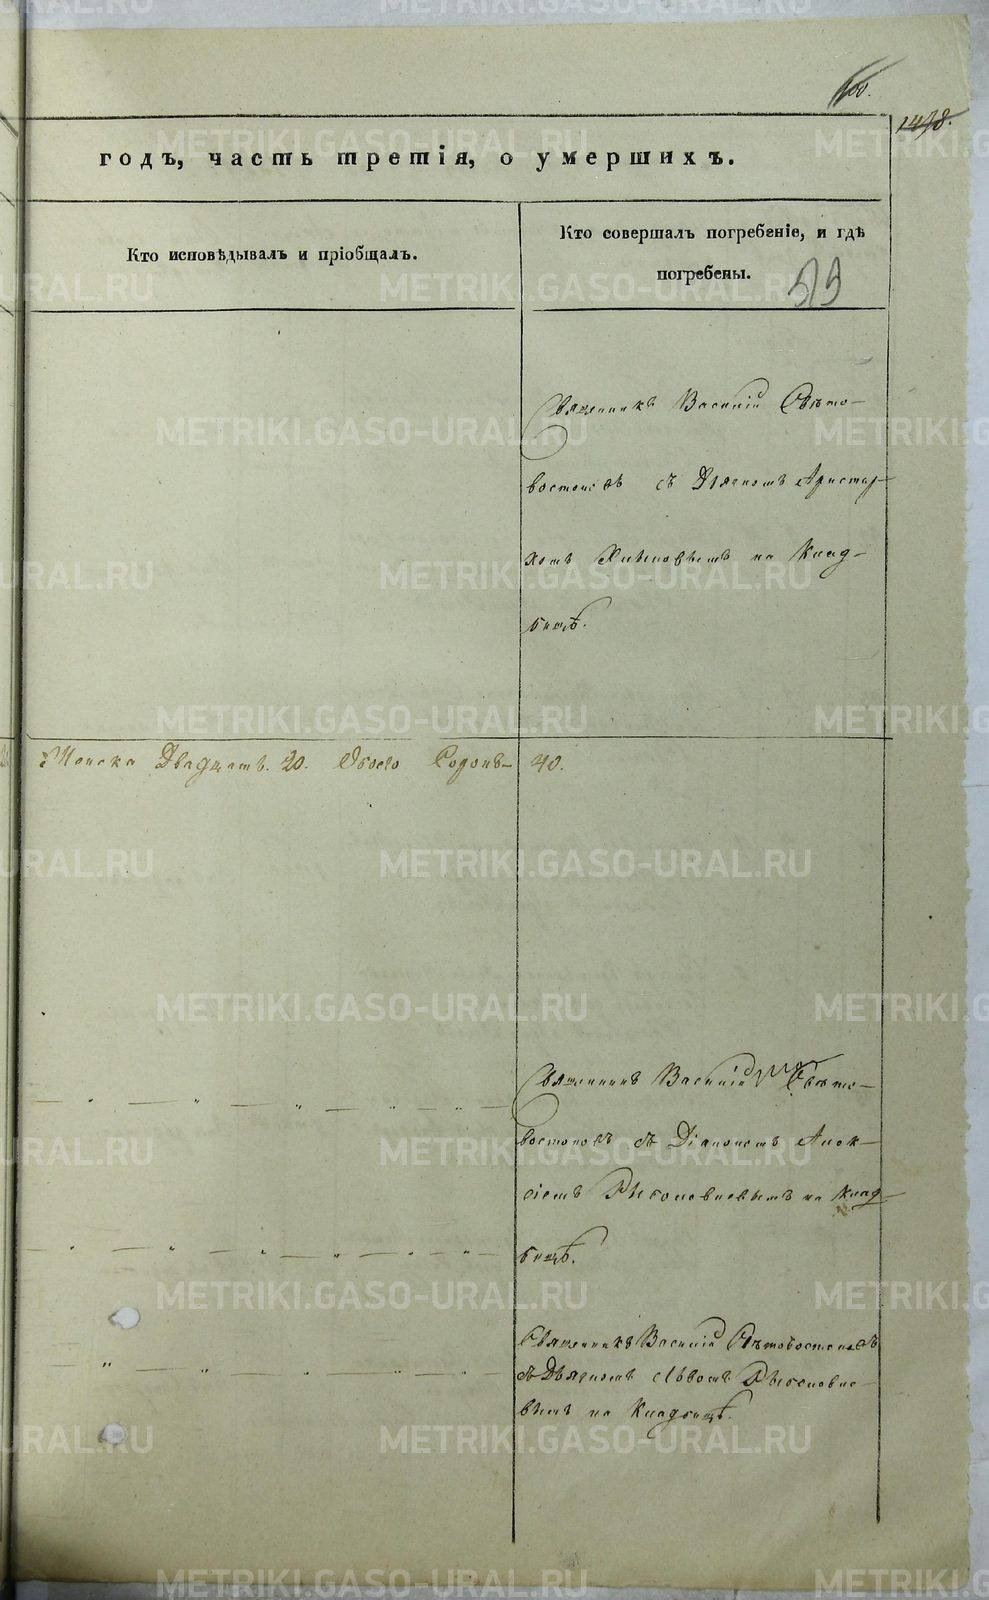 1478.
годъ, часть третія, о умершихъ.
Кто исповѣдывалъ и пріобщалъ.
Кто совершалъ погребеніе, и гдѣ
погребены.
Священникъ Василій Свѣто-
востоковъ съ Дьячкомъ Аристар-
хомъ на Клад-
бищѣ.
Женска Двадцать. 20. Обоего Половъ- 40.
Священникъ Василій Свѣто-
востоковъ съ Діакономъ Алек-
сіемъ на Клад-
бищѣ.
Священникъ Василій Свѣтовостоковъ
съ Дьячкомъ Львомъ
на Кладбищѣ.
METRIKI.GASO-URAL.RU